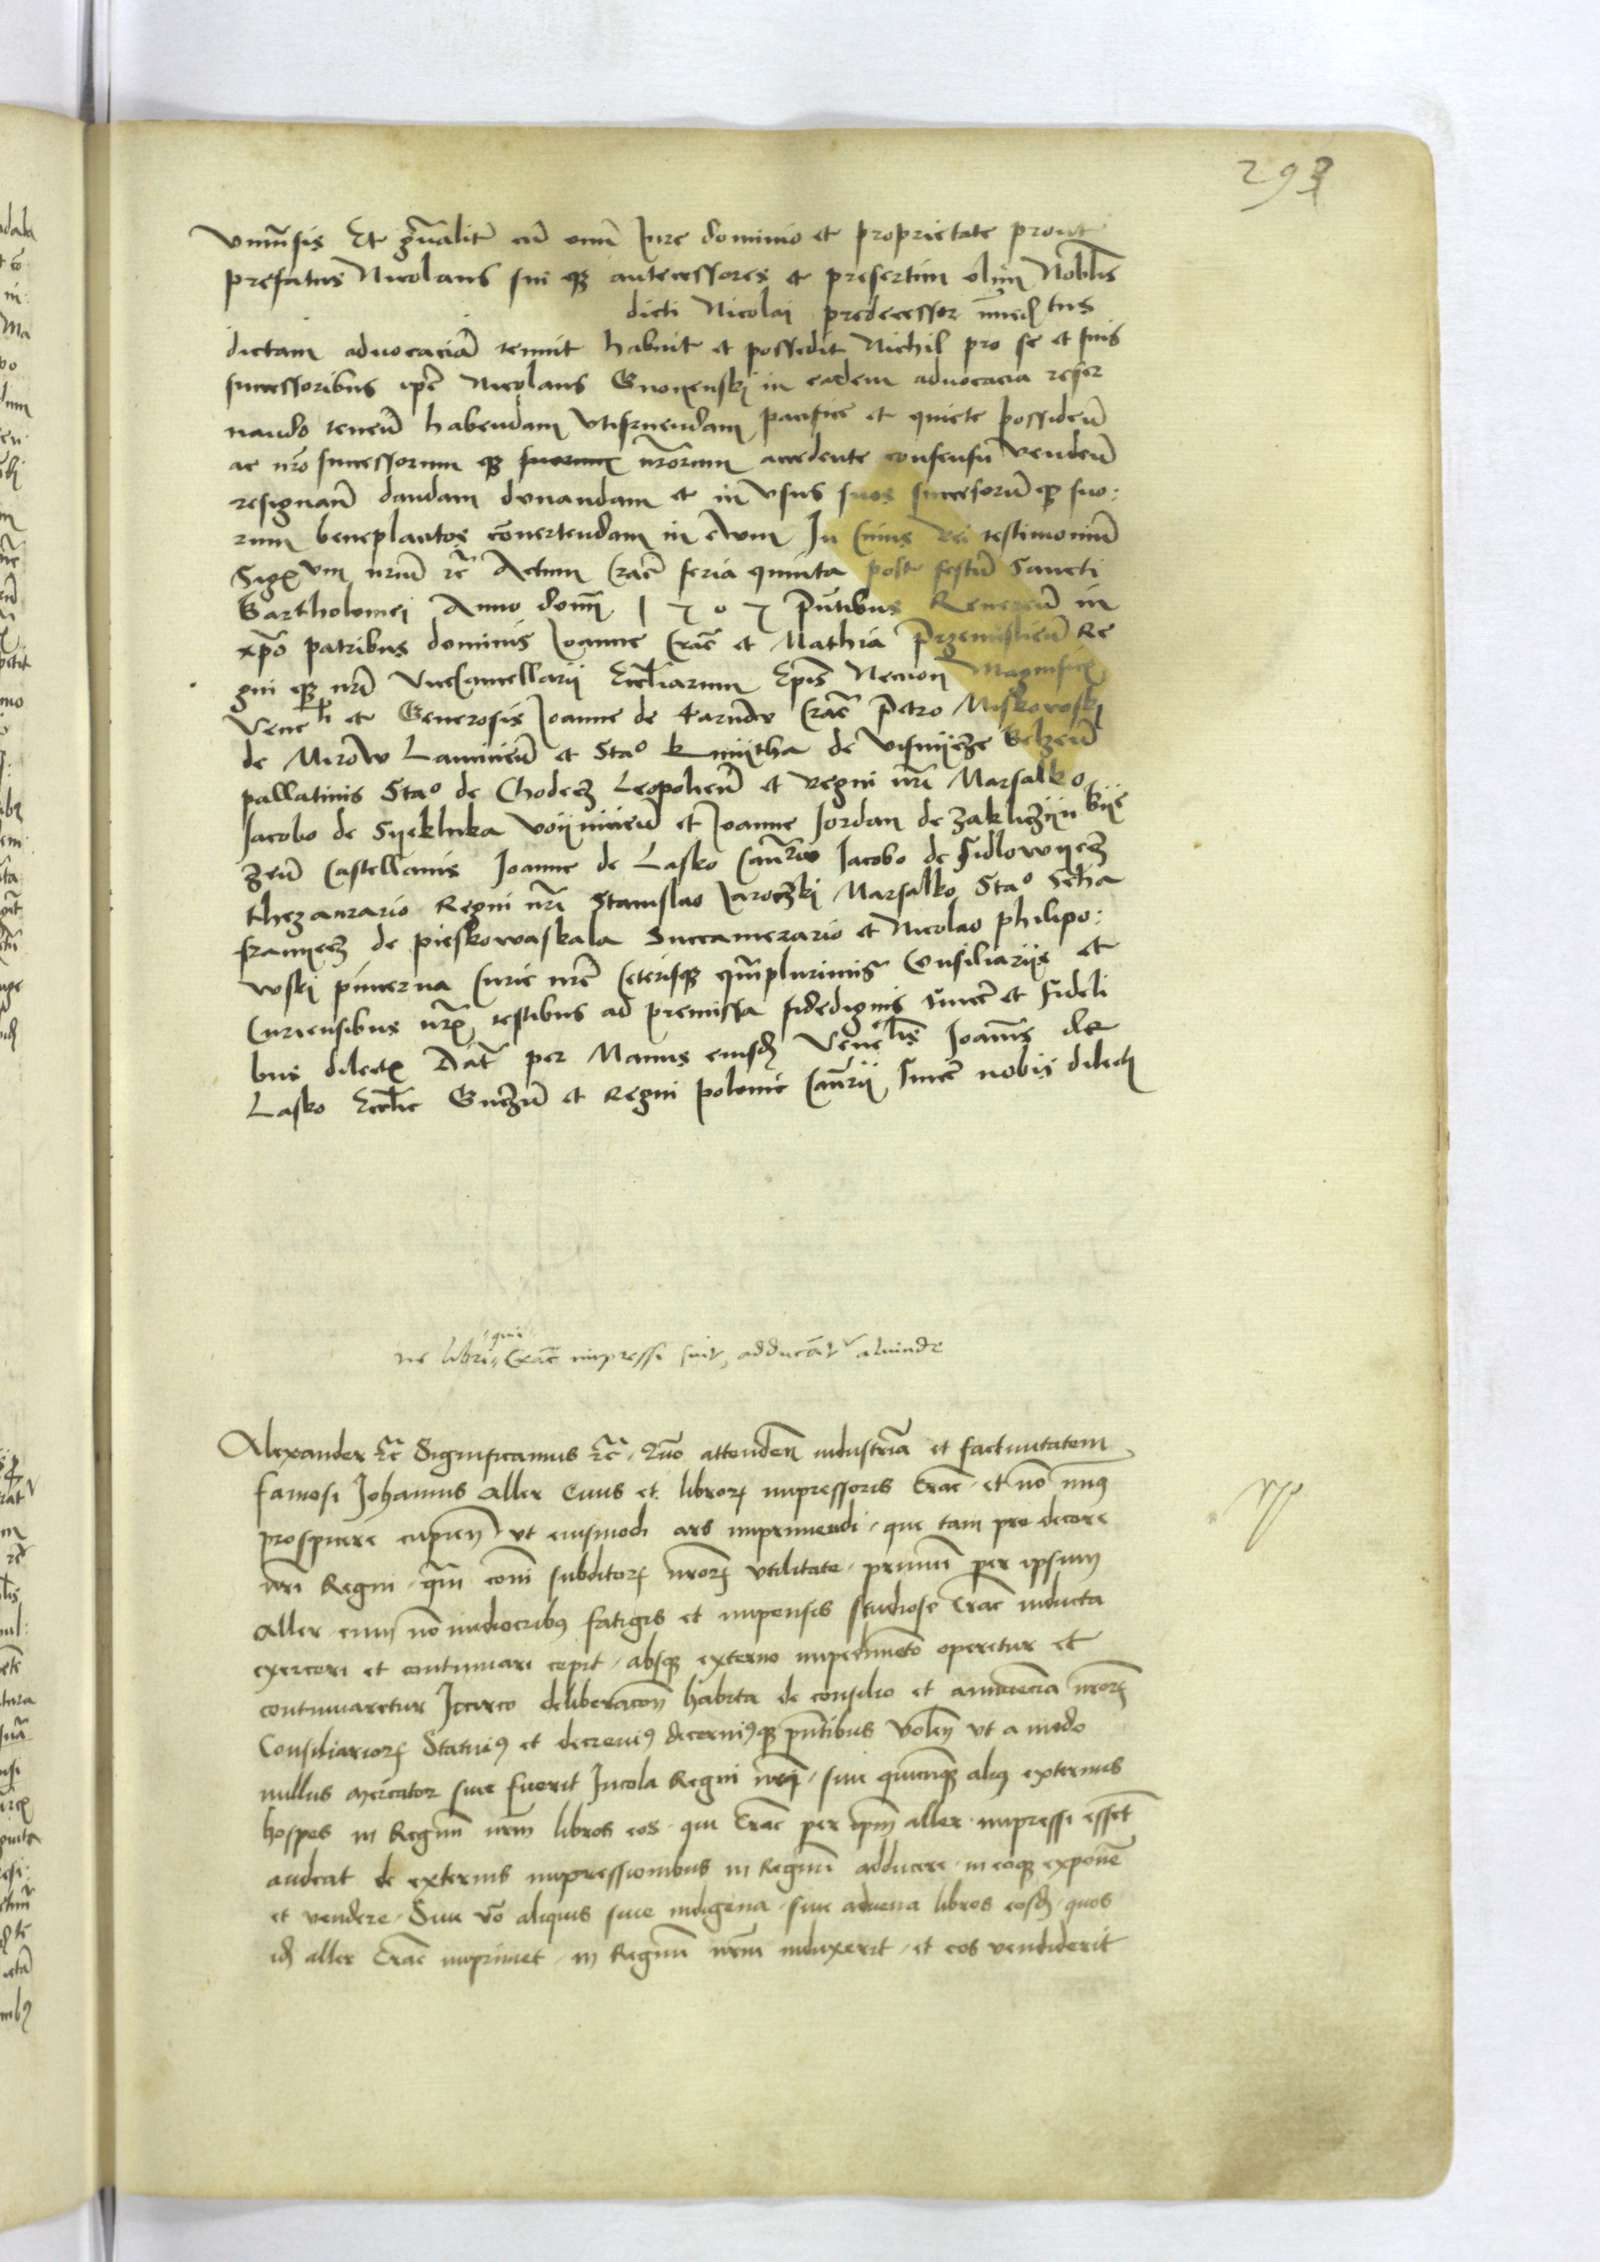 293
vniuersis Et gnalitr cu omi Iure dominio et proprietate prout
prefatus Nicolaus sui qz antecessores et presertim olim Noblis
dicti Nicolai predecessor imed tus
dictam aduocaciam tenuit habuit et possedit Nichil pro se et suis
successoribus ipse Nicolaus in eadem aduocacia reser
uando teneñ habendam vtifruendam pacifice et quiete possideñ
ac nro successorum qz suorum nrorum accedente consensu vendeñ
resignañ dandam donandam et in vsus suos successoru qz suo:
rum beneplacitos conuertendam in ewm In Cuius Rei testimoniu
Sig vm nrum rc Actum Crac feria quinta post festu Sancti
Bartholomei Anno domi 1505 pntibus Reueren in
xpo patribus dominis Joanne Crac et Mathia Przemislien Re
gni qz nri Vicecancellarii Eccliarum Epis Necnon Magnificis
Vene li et Generosis Joanne de tarnow Crac Petro Miskowski
de Mirow Lancicien et Stao kmytha de visnijcze Belzen
pallatinis Stao de Chodecz Leopolien et Regni nri Marsalko
Jacobo de Syekluka voijnicien et Joanne Jordan de zakliczijn bije
czen Castellanis Joanne de Lasko Canrio Jacobo de Sidlowyecz
thezaurario Regni nri Stanislao Jaroczki Marsalko Stao Scha
franyecz de pieskowaskala Succamerario et Nicolao philipo:
wski pincerna Curie nre Ceterisqz qmplurimis Consiliariis et
Curiensibus nris testibus ad premissa fidedignis sincer et fideli
bus dilectis Dat per Manus eiusd Vene lis Joanis de
Lasko Ecclie Gneznen et Regni polonie Canrii sincer nobis dilecti
ne libri qui Crac impressi sunt, adducantr aliunde
Alexander rc Significamus rc. Quo attenden industria et factiuitatem
famosi Johannis aller Ciuis et libror impressoris Crac et no min9
prospicere cupien vt eiusmodi ars imprimendi, que tam pro decore
nri Regni, qm comi subditor nror vtilitate, primum per ipsum
aller cum no mediocrib9 fatigis et impensis studiose Crac inducta
exerceri et continuari cepit, absqz externo impedimeto operetur et
continuaretur Iccirco deliberacon habita de consilio et annuencia nror
Consiliarior Statui9 et decreui9 decerni9qz pntibus Volen vt a modo
nullus mercator siue fuerit Incola Regni nri, siue quicunqz alius externus
hospes in Regnum nrm libros eos qui Crac per ipm aller impressi essent
audeat de externis impressionibus in Regnum adducere in eoqz exponere
et vendere. Siue vo aliquis siue indigena, siue aduena libros eosd quos
id aller Crac imprimet, in Regnum nrm induxerit, et eos vendiderit